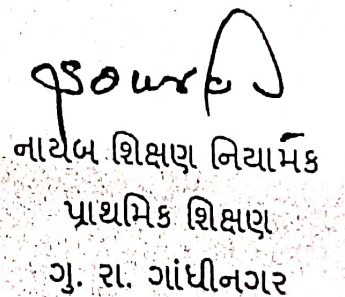 નાયબ શિક્ષણ નિયામક
પ્રાથમિક શિક્ષણ
ગુ. રા. ગાંધીનગર